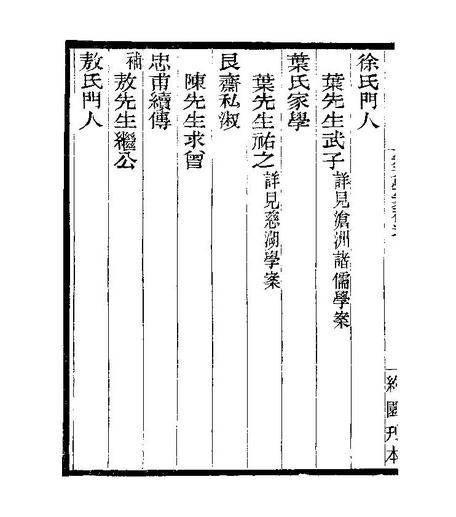 徐氏門人
葉先生武子詳見滄洲諸儒學案
葉氏家學
葉先生祐之詳見慈湖學案
艮齋私淑
陳先生求曾
忠甫續傳
補敖先生繼公
敖氏門人
約園刊本